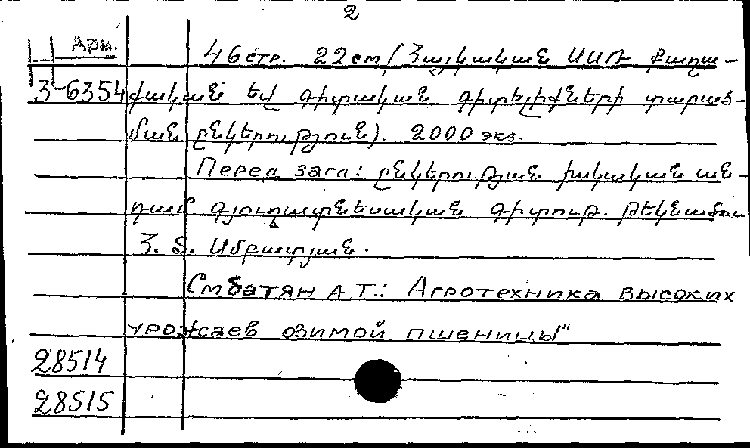 2
Арм.
46стр. 22см (Հայկական ՍՍՌ քաղա-
3-6354 քական եվ գիտական գիտելիքների տարած-
ման ընկերություն). 2000 экз.
Перед загл: ընկերության իսկական ան-
դամ գյուղատնտեսական գիտութ. թեկնածու
Հ. Տ. Սմբատյան.
Смбатян А.Т.: Агротехника высоких
урожаев озимой пшеницы"
28514
28515